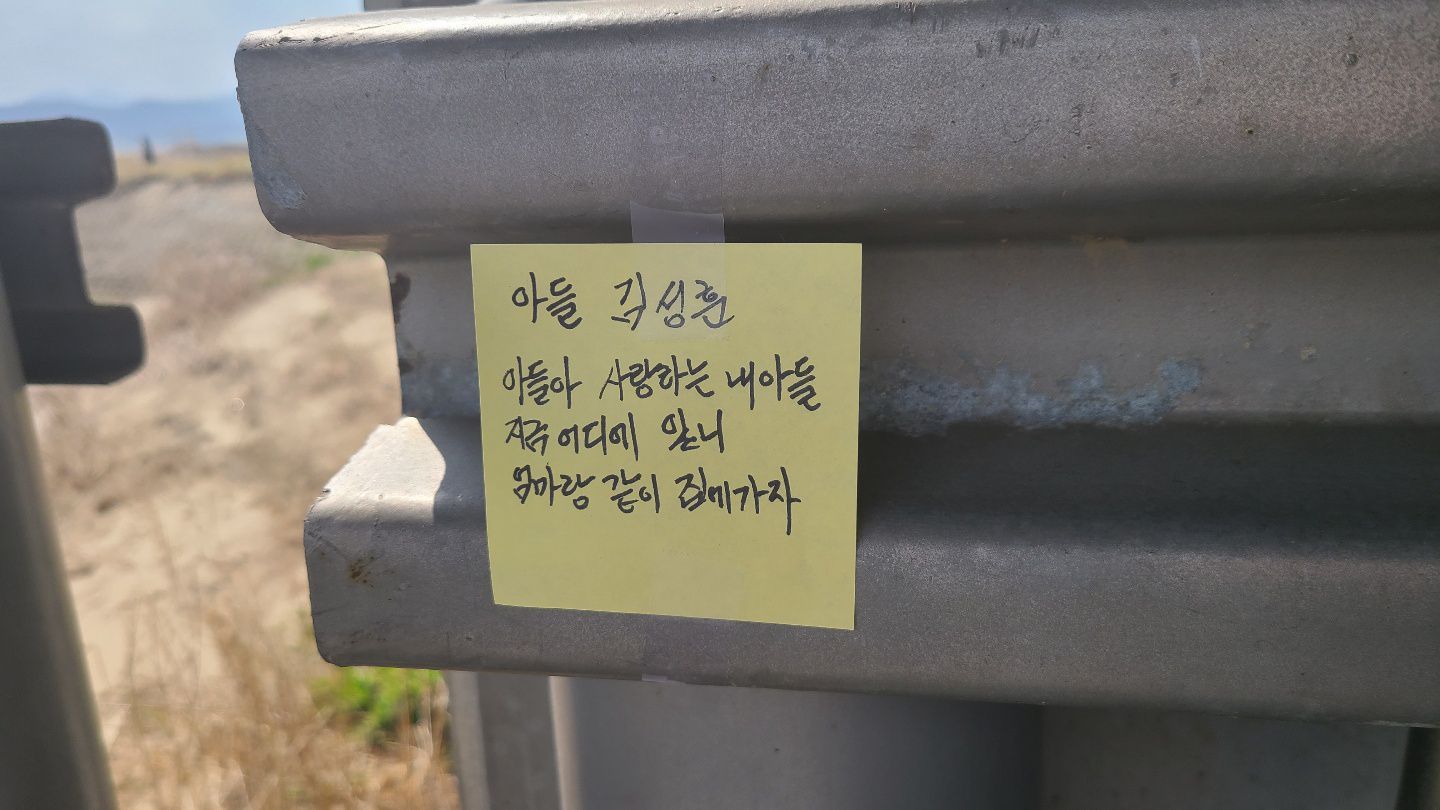 아들 김성훈
아들아 사랑하는 내아들
지금 어디에 있니
엄마랑 같이 집에가자